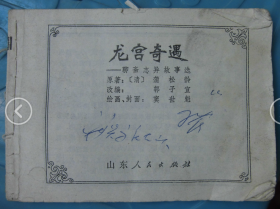 龙宫奇遇
——聊斋志异故事选
原著：〔清〕蒲松龄
改编：郭子宣
绘画、封面：
山东人民出版社